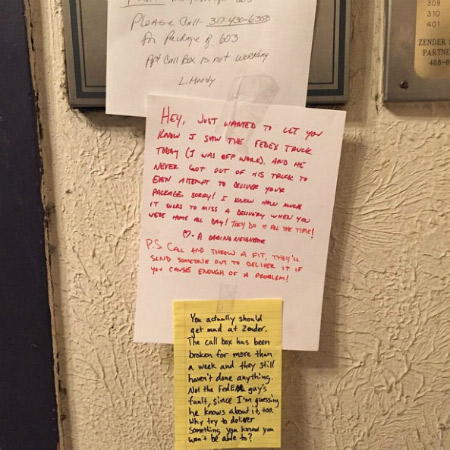 Please Call-
for Package @ 603
Apt Call Box is not working
309
310
401
ZENDER
PARTNE
Hey, just wanted to let you
know I saw the FedEx truck
today (I was off work), and he
never got out of his truck to
even attempt to deliver your
package. Sorry! I know how much
it sucks to miss a delivery when you
were home all day! They do it all the time!
♡- A caring neighbor
P.S Call and throw a fit, they'll
send someone out to deliver it if
you cause enough of a problem!
You actually should
get mad at Zender.
The call box has been
broken for more than
a week and they still
haven't done anything.
Not the FedEx guy's
fault, since I'm guessing
he knows about it, too.
Why try to deliver
something you know you
won't be able to?